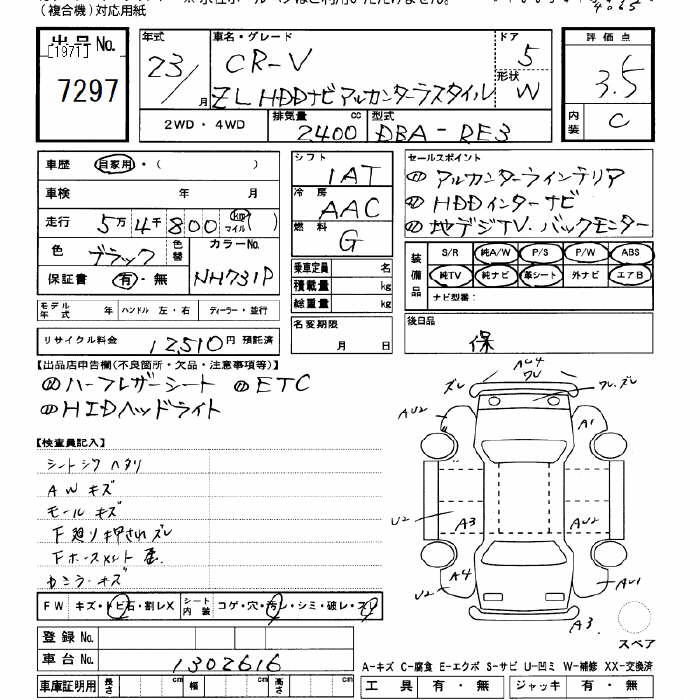 (複合機)対応用紙
出品No.
[1971]
7297
年式
23/
月
車名・グレード
CR-V
ZL HDDナビアルカンターラスタイル
ドア
5
形状
W
2WD・4WD
排気量
2400 cc
型式
DBA-RE3
評価点
3.5
内装
C
車歴
自家用・( )
車検 年 月
走行
5万4千800
(km マイル)
色
ブラック
色替
カラーNo.
NH731P
保証書
有・無
モデル年式 年
ハンドル 左・右
ディーラー・並行
リサイクル料金
12,510円 預託済
シフト
IAT
冷房
AAC
燃料
G
乗車定員 名
積載量 kg
総重量 kg
名変期限
月 日
セールスポイント
アルカンターラインテリア
HDDインターナビ
地デジTV.バックモニター
装備品
S/R
純A/W
P/S
P/W
ABS
純TV
純ナビ
革シート
外ナビ
エアB
ナビ型番:
後日品
保
【出品店申告欄(不良箇所・欠品・注意事項等)】
ハーフレザーシート
ETC
HIDヘッドライト
【検査員記入】
シートシワ ヘタリ
AW キズ
モール キズ
F廻り押されズレ
カンラーキズ
FW
キズ・トビ石・割レX
シート内装
コゲ・穴・汚レ・シミ・破レ・スレ
登録No.
車台No.
1302616
車庫証明用
長さ cm
幅 cm
高さ cm
AU4
ズレ
ワレ
ワレ.ズレ
AU2
A1
U2
A3
AU2
A4
U2
AU1
A3.
スペア
A-キズ C-腐食 E-エクボ S-サビ U-凹ミ W-補修 XX-交換済
工具 有・無
ジャッキ 有・無